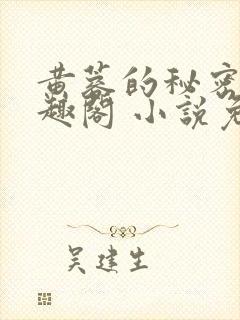 黄墓的秘密
趣阁 小说免
吴建生